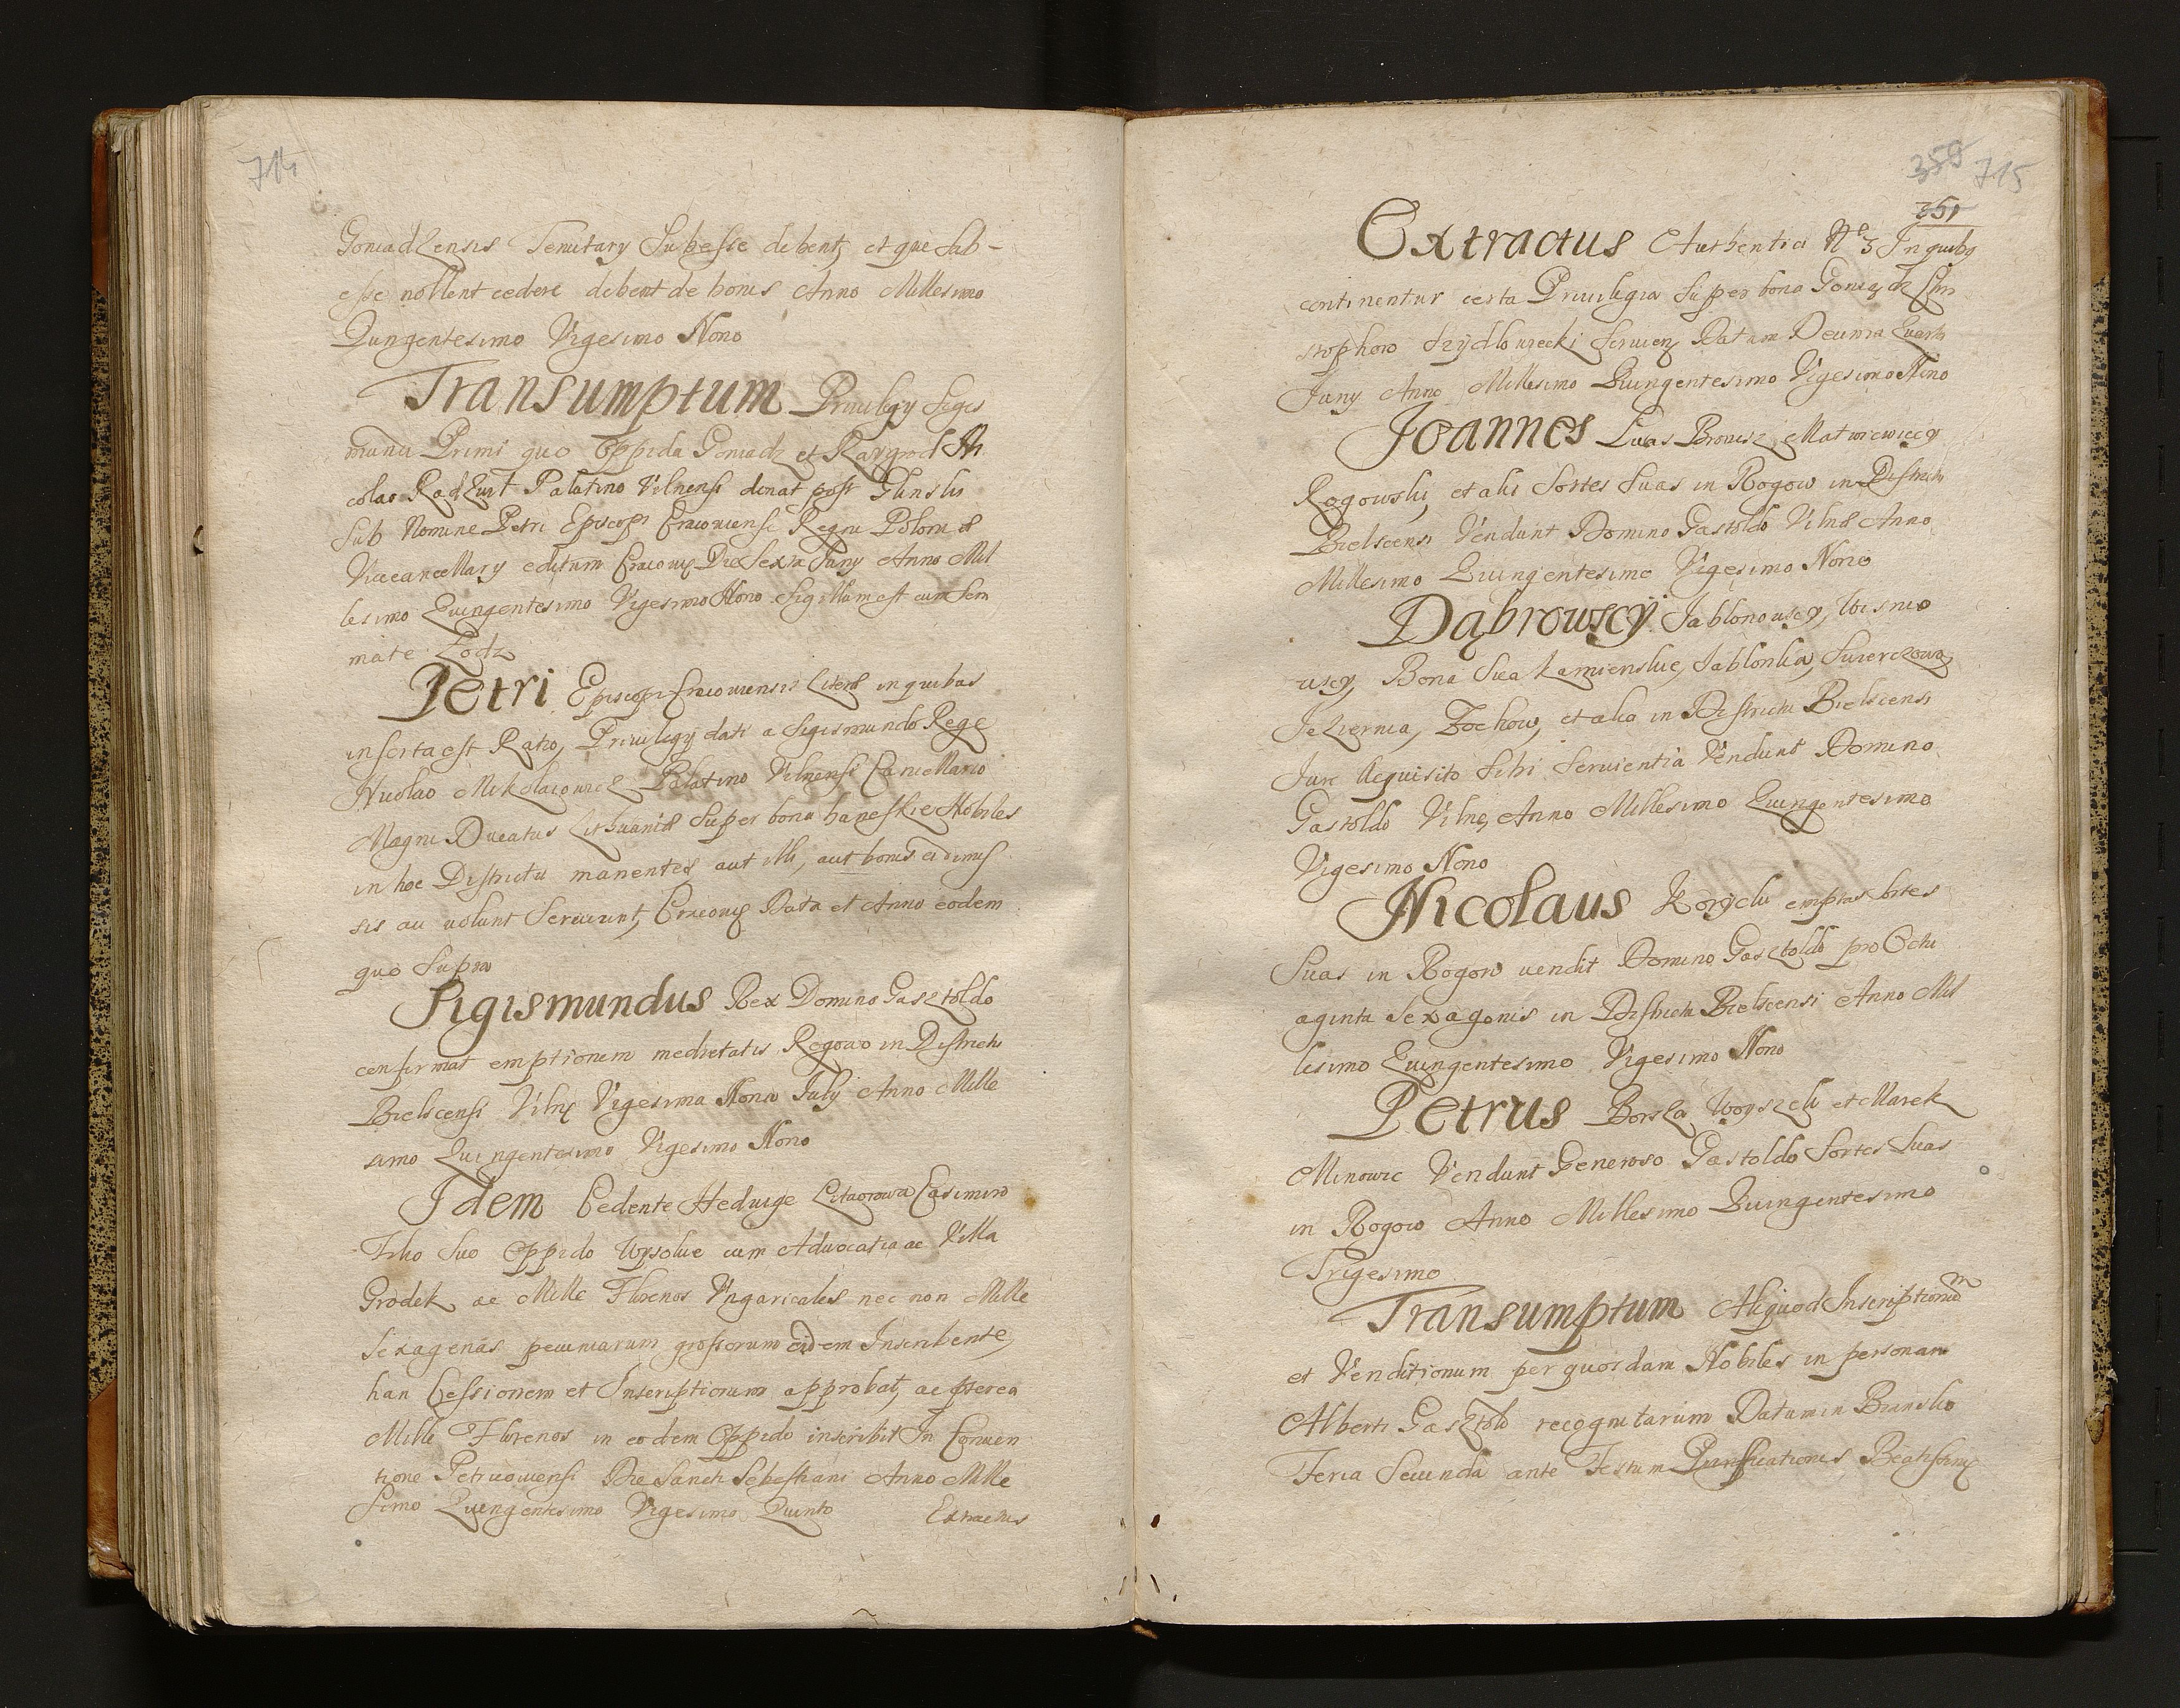 714
Goniadzensis Tenutary Subesse debent, et que Sub-
esse nollent cedere debent de bonis Anno Millesimo
Qungentesimo Vigesimo Nono
Transumptum Priuilegy Sigis
mundi Primi quo Oppida Goniadz et Raygrod Ni
colao Radziuił Palatino Vilnensi donat post Glinski
Sub Nomine Petri Episcopi Cracouiensi Regni Poloniæ
Vicecancellary editum Cracouiæ Die Sexta Juny Anno Mil
lesimo Quingentesimo Vigesimo Nono Sigillum est cum Sem
mate Lodz
Petri Episcopi Cracouiensis Literæ in quibus
inserta est Ratio, Priuilegy dati a Sigismundo Rege
Nicolao Mikolaiowicz Palatino Vilnensi Cancellario
Magni Ducatus Lithuaniæ Super bona Nobiles
in hoc Districtu manentes, aut illi, aut bonis
sis au uolunt Seruiunt, Cracouiæ Data et Anno eodem
quo Supra
Sigismundus Rex Domino Gasztoldo
confirmat emptionem medietatis Rogowo in Districtu
Bielscensi Vilnę Vigesima Nona July Anno Mille
simo Quingentesimo Vigesimo Nono
Idem Cedente Heduige Litaorowa Casimiro
Filio Suo Oppido Wysokie cum Aduocatia ac Villa
Grodek ac Mille Florenos Vngaricales nec non Mille
Sexagenas pecuniarum grossorum eidem Inscribente,
han Cessionem et Inscriptionem approbat, ac pterea
Mille Florenos in eodem Oppido inscribit In Conuen
tione Petrcouiensi Die Sancti Sebestiani Anno Mille
Simo Quingentesimo Vigesimo Quinto Extractus
359 715
351
Extractus Authentici No 3 In quibq
continentur certa Priuilegia Super bona Goniądz Chri
stophoro Szydłowiecki Seruieñ Datum Decima Quarta
Juny Anno Millesimo Quingentesimo Vigesimo Nino
Joannes Lucas Bronisz, Matwiewiccy
Rogowski, et alii Sortes Suas in Rogow in Districtu
Bielscensi Vendunt Domino Gastoldo Vilnæ Anno
Millesimo Quingentesimo Vigesimo Nono
Dąbrowscÿ Jablonowscy, Wisnio
wscy, Bona Sua Kamienskie, Jablonka, Swierczowa,
Jeziernia, Zochow, et alia in Districtu Bielscensi
Jure Acquisito Sibi Seruientia Vendunt Domino
Gastoldo Vilnę Anno Millesimo Quingentesimo
Vigesimo Nono
Nicolaus Korycki emptas Sortes
Suas in Rogow uendit Domino Gasztoldo pro Octu
aginta Sexagenis in Districtu Bielscensi Anno Mil
lesimo Quingentesimo Vigesimo Nono
Petrus Borsza, Woyszeli et Marek
Minowic Vendunt Generoso Gastoldo Sortes Suas
in Rogow Anno Millesimo Quingentesimo
Trigesimo
Transumptum Aliquod Inscriptionũm
et Venditionum per quosdam Nobiles in personam
Alberti Gasztold recognitarum Datum in Bransko
Feria Secunda ante Festum Purificationis Beatissimę